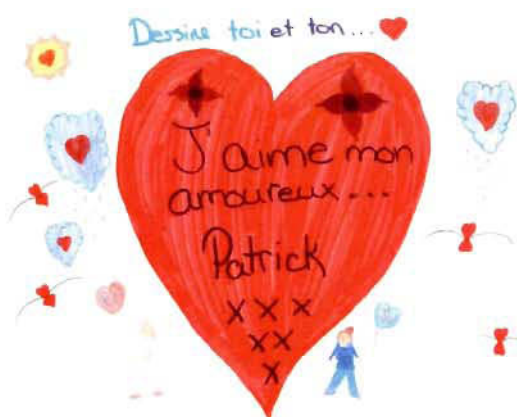 Dessine toi et ton...
J'aime mon
amoureux...
Patrick
x x x
x x
x